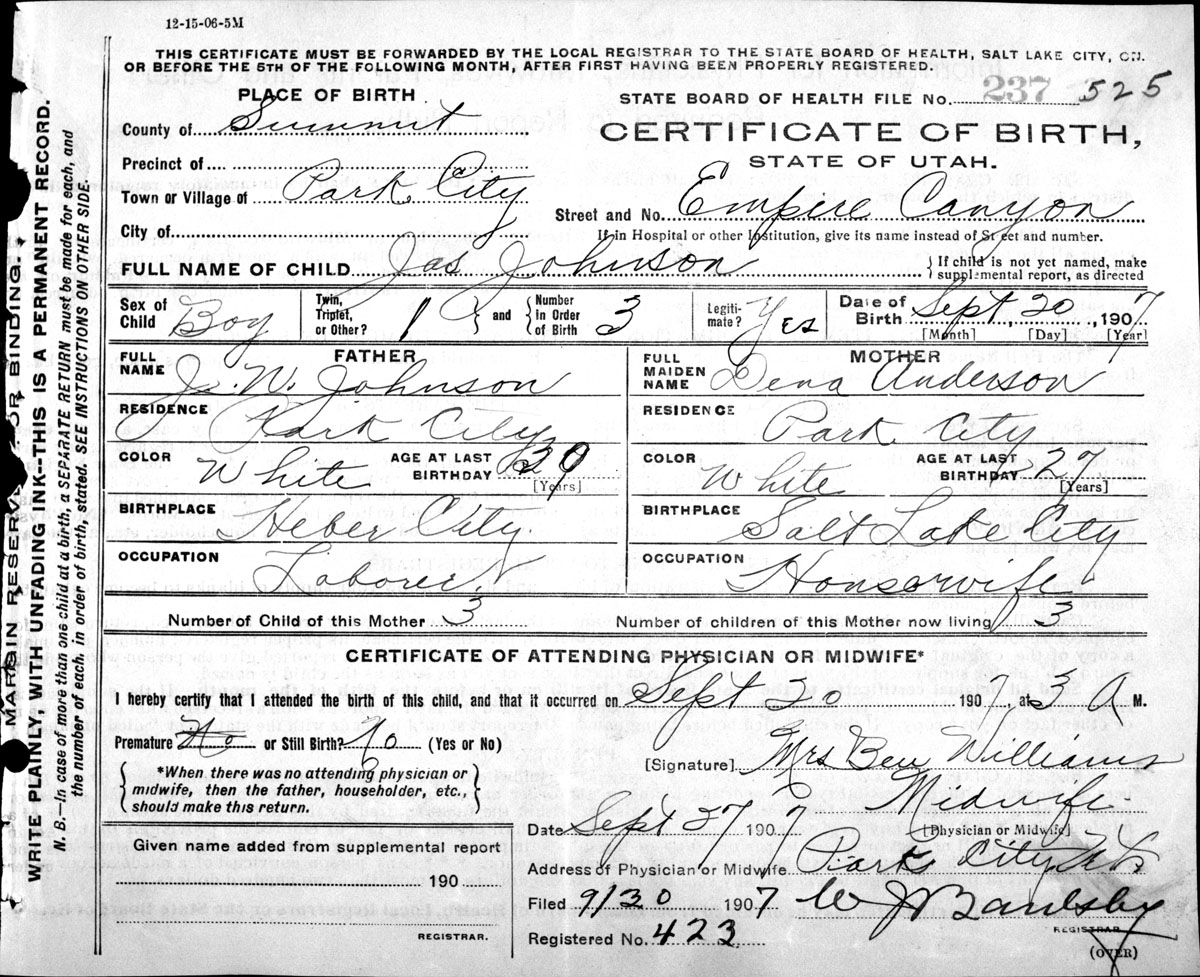 12-15-06-5M
THIS CERTIFICATE MUST BE FORWARDED BY THE LOCAL REGISTRAR TO THE STATE BOARD OF HEALTH, SALT LAKE CITY, ON
OR BEFORE THE 5TH OF THE FOLLOWING MONTH, AFTER FIRST HAVING BEEN PROPERLY REGISTERED.
PLACE OF BIRTH
STATE BOARD OF HEALTH FILE No. 237 525
County of Summit
CERTIFICATE OF BIRTH,
STATE OF UTAH.
Precinct of
Town or Village of Park City
Street and No. Empire Canyon
City of
If in Hospital or other Institution, give its name instead of Street and number.
FULL NAME OF CHILD Jas Johnson
If child is not yet named, make
supplemental report, as directed
Sex of Child Boy
Twin, Triplet, or Other? 1 and Number in Order of Birth 3
Legitimate? Yes
Date of Birth Sept. 20 1907
[Month] [Day] [Year]
FATHER
FULL NAME J. W. Johnson
MOTHER
FULL MAIDEN NAME Dena Anderson
RESIDENCE Park City
RESIDENCE Park City
COLOR White AGE AT LAST BIRTHDAY 39 [Years]
COLOR White AGE AT LAST BIRTHDAY 27 [Years]
BIRTHPLACE Heber City.
BIRTHPLACE Salt Lake City
OCCUPATION Laborer
OCCUPATION Housewife
Number of Child of this Mother 3
Number of children of this Mother now living 3
CERTIFICATE OF ATTENDING PHYSICIAN OR MIDWIFE*
I hereby certify that I attended the birth of this child, and that it occurred on Sept 20 1907, at 3 A M.
Premature No or Still Birth? No (Yes or No)
[Signature] Mrs Ben Williams
*When there was no attending physician or
midwife, then the father, householder, etc.,
should make this return.
Midwife
Date Sept 27 1907
[Physician or Midwife]
Given name added from supplemental report
190
REGISTRAR.
Address of Physician or Midwife Park City
Filed 9/30 1907
REGISTRAR
Registered No. 423
(OVER)
MARGIN RESERVED FOR BINDING.
WRITE PLAINLY, WITH UNFADING INK--THIS IS A PERMANENT RECORD.
N. B.—In case of more than one child at a birth, a SEPARATE RETURN must be made for each, and
the number of each, in order of birth, stated. SEE INSTRUCTIONS ON OTHER SIDE.